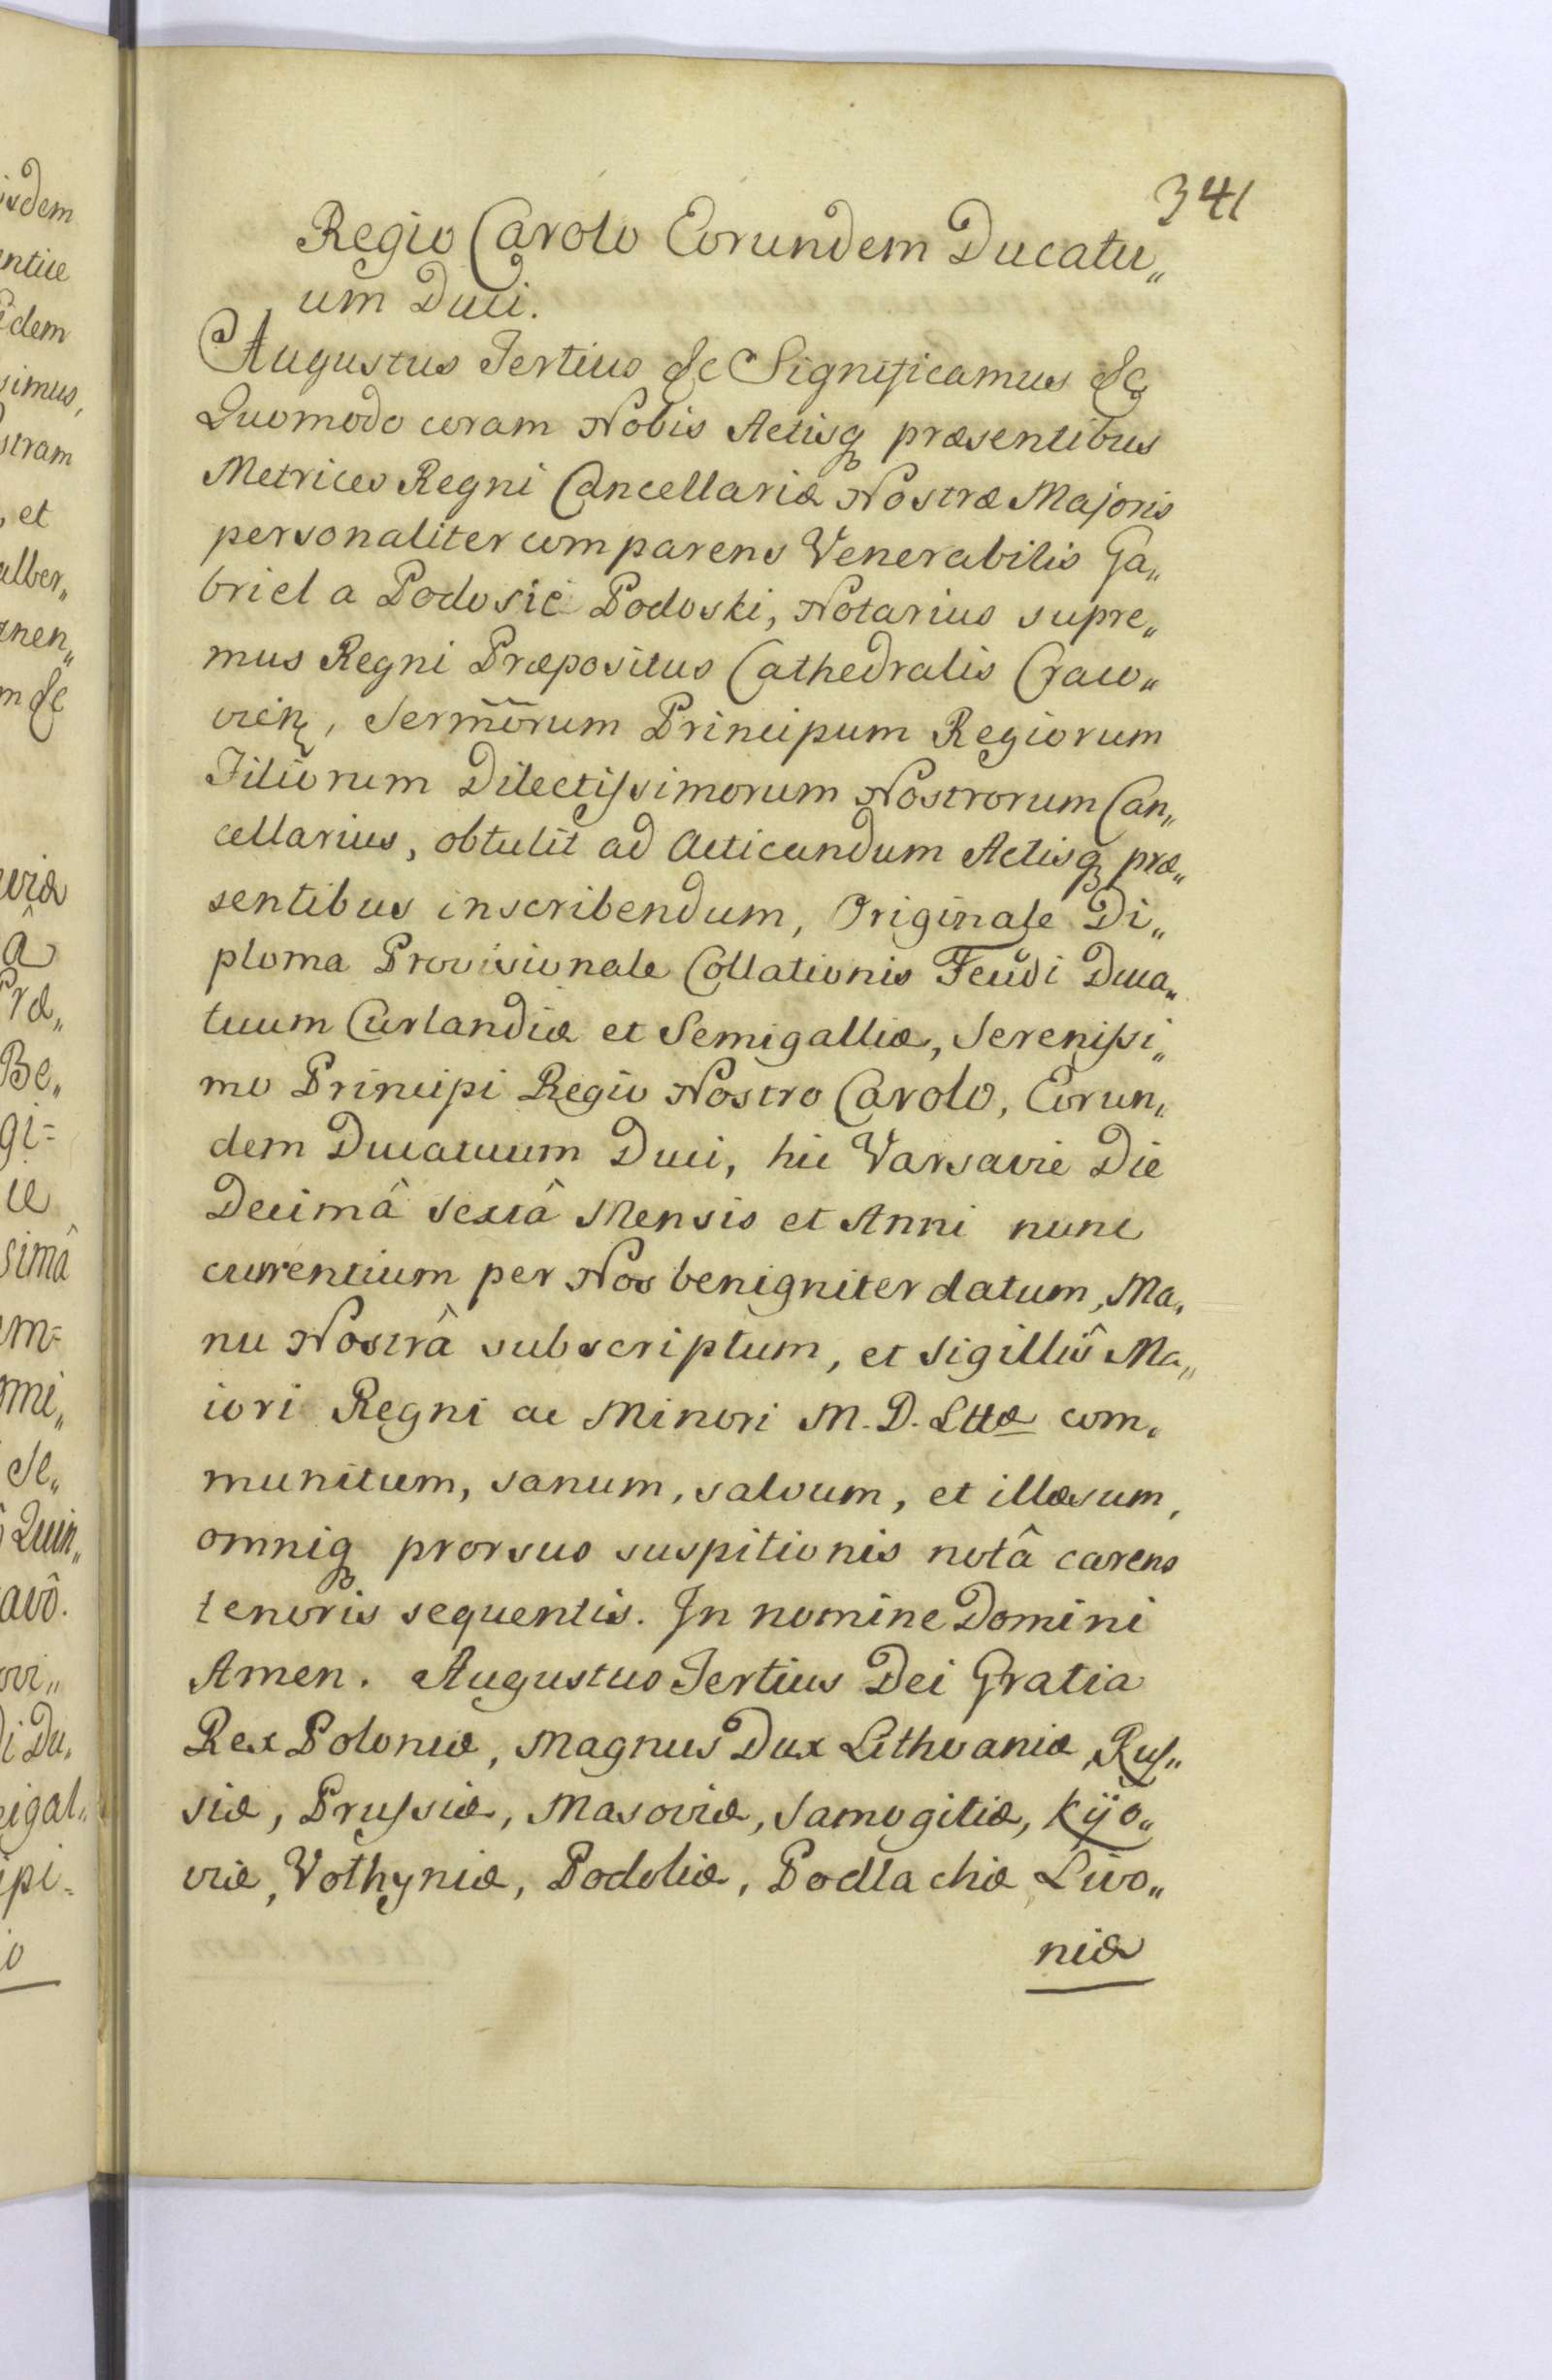 341
Regio Carolo Eorundem Ducatu„
um Duci.
Augustus Tertius &c Significamus &c
Quomodo coram Nobis Actisq præsentibus
Metrices Regni Cancellariæ Nostræ Majoris
personaliter comparens Venerabilis Ga„
briel a Podosie Podoski, Notarius supre„
mus Regni Præpositus Cathedralis Craco„
vien, Sermõrum Principum Regiorum
Filiorum Dilectissimorum Nostrorum Can„
cellarius, obtulit ad Acticandum Actisq præ„
sentibus inscribendum, Originale Di„
ploma Provisionale Collationis Feudi Duca„
tuum Curlandiæ et Semigalliæ, Serenissi„
mo Principi Regio Nostro Carolo, Eorun„
dem Ducatuum Duci, hic Varsavie Die
Decimâ Sextâ Mensis et Anni nunc
currentium per Nos benigniter datum, Ma„
nu Nostrâ subscriptum, et sigillis Ma„
iori Regni ac Minori M. D. Lttæ com„
munitum, sanum, salvum, et illæsum,
omniq prorsus suspitionis notâ carens
tenoris sequentis. In nomine Domini
Amen. Augustus Tertius Dei Gratia
Rex Poloniæ, Magnus Dux Lithvaniæ, Rus„
siæ, Prussiæ, Masoviæ, Samogitiæ, Kijo„
viæ, Volhyniæ, Podoliæ, Podlachiæ, Livo„
niæ
isdem
simus,
stram
, et
alber„
viæ
â
Præ„
Be„
gi=
simâ
mi„
Se„
Quin„
avô.
ovi„
i Du„
igal„
ipi=
io